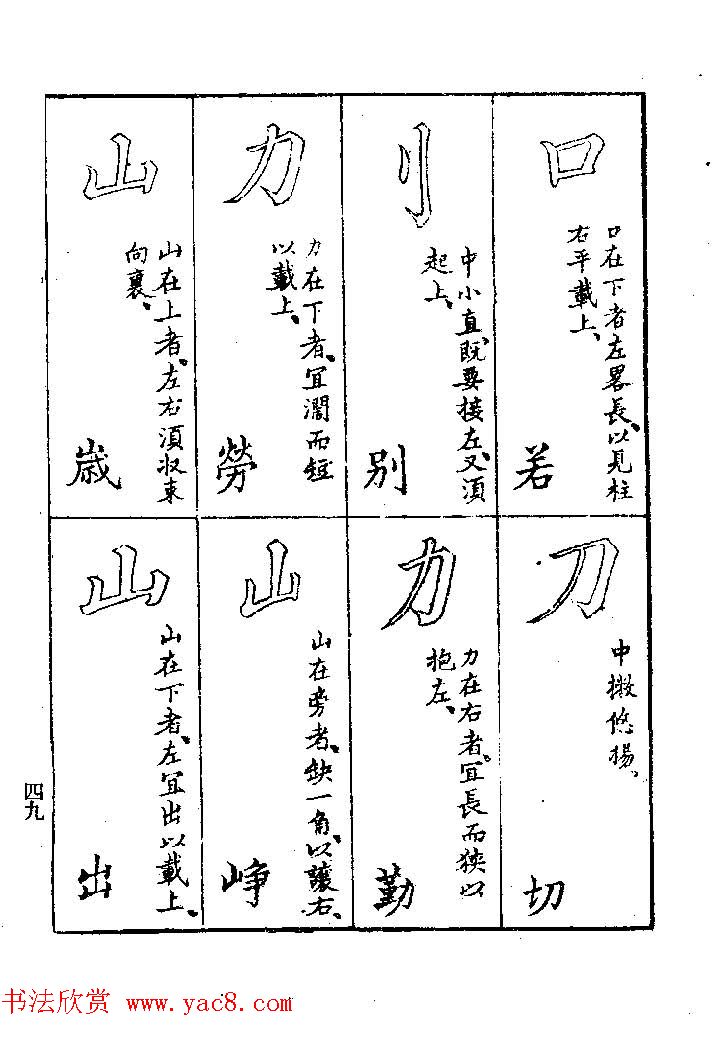 口
口在下者左畧長、以見柱
右平載上、
若
刂
中小直、既要接左、又須
起上、
别
力
力在下者、宜濶而短
以載上、
勞
山
山在上者、左右須收束
向裏、
歲
刀
中撇悠揚、
切
力
力在右者、宜長而狹以
抱左、
勤
山
山在旁者、缺一角、以讓右、
峥
山
山在下者、左宜出以載上、
出
四九
书法欣赏 www.yac8.com